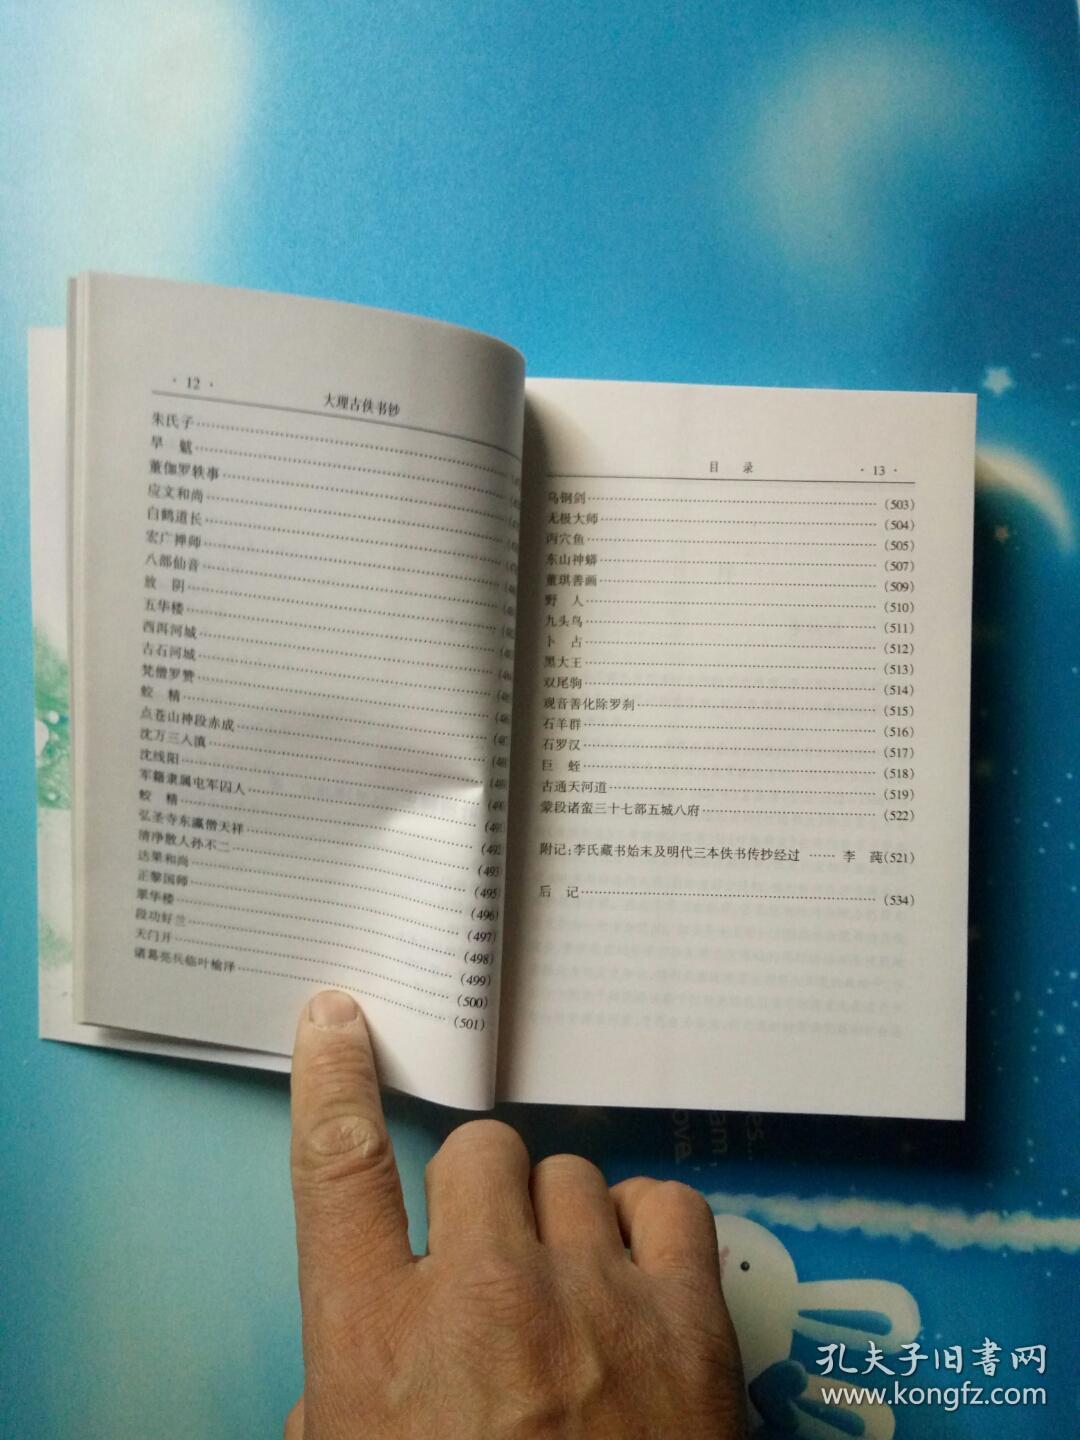 · 12 ·
大理古佚书钞
朱氏子
旱 魃
董伽罗轶事
应文和尚
白鹤道长
宏广禅师
八部仙音
放 阴
五华楼
西洱河城
古石河城
梵僧罗赞
蛟 精
点苍山神段赤成
沈万三入滇
沈线阳
军籍隶属屯军囚人 (490)
蛟 精 (491)
弘圣寺东瀛僧天祥 (492)
清净散人孙不二 (493)
达果和尚 (495)
正黎国师 (496)
翠华楼 (497)
段功好兰 (498)
天门开 (499)
诸葛亮兵临叶榆泽 (501)
(500)
目 录
· 13 ·
乌钢剑 (503)
无极大师 (504)
丙穴鱼 (505)
东山神蟒 (507)
董琪善画 (509)
野 人 (510)
九头鸟 (511)
卜 占 (512)
黑大王 (513)
双尾驹 (514)
观音善化除罗刹 (515)
石羊群 (516)
石罗汉 (517)
巨 蛭 (518)
古通天河道 (519)
蒙段诸蛮三十七部五城八府 (522)
附记：李氏藏书始末及明代三本佚书传抄经过 …… 李 莼(521)
后 记 (534)
es...
am
ova
孔夫子旧書网
www.kongfz.com